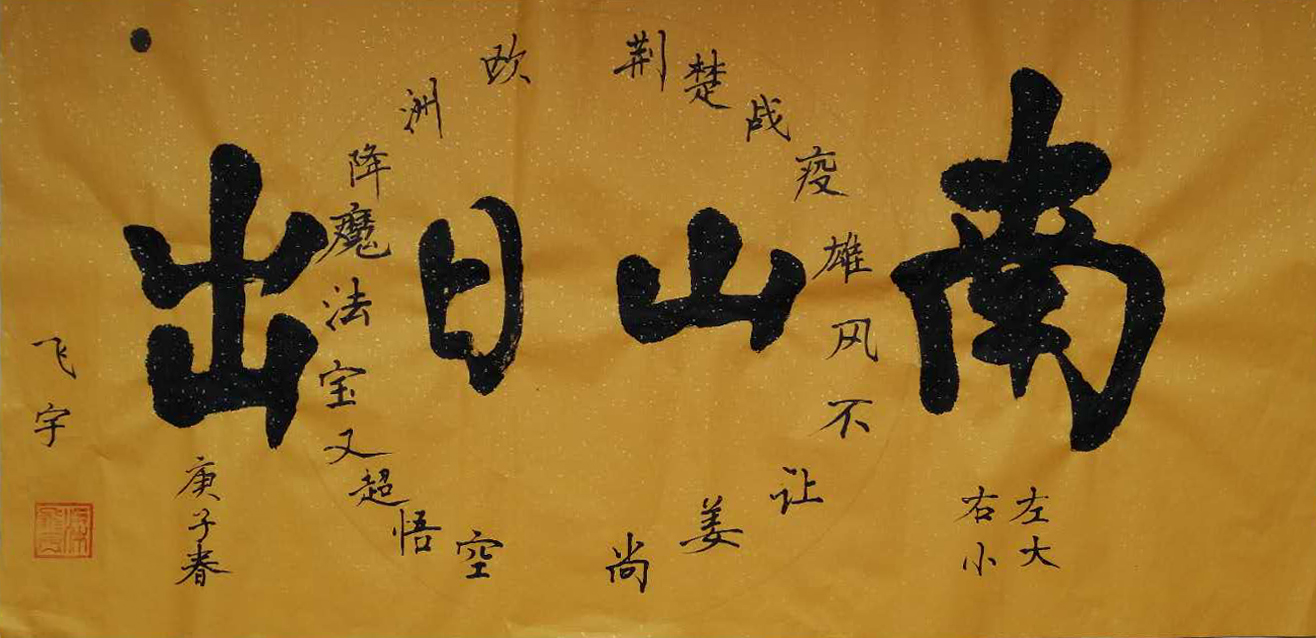 南山日出
左大
右小
荆楚战疫雄风不让姜尚
欧洲降魔法宝又超悟空
庚子春
飞宇